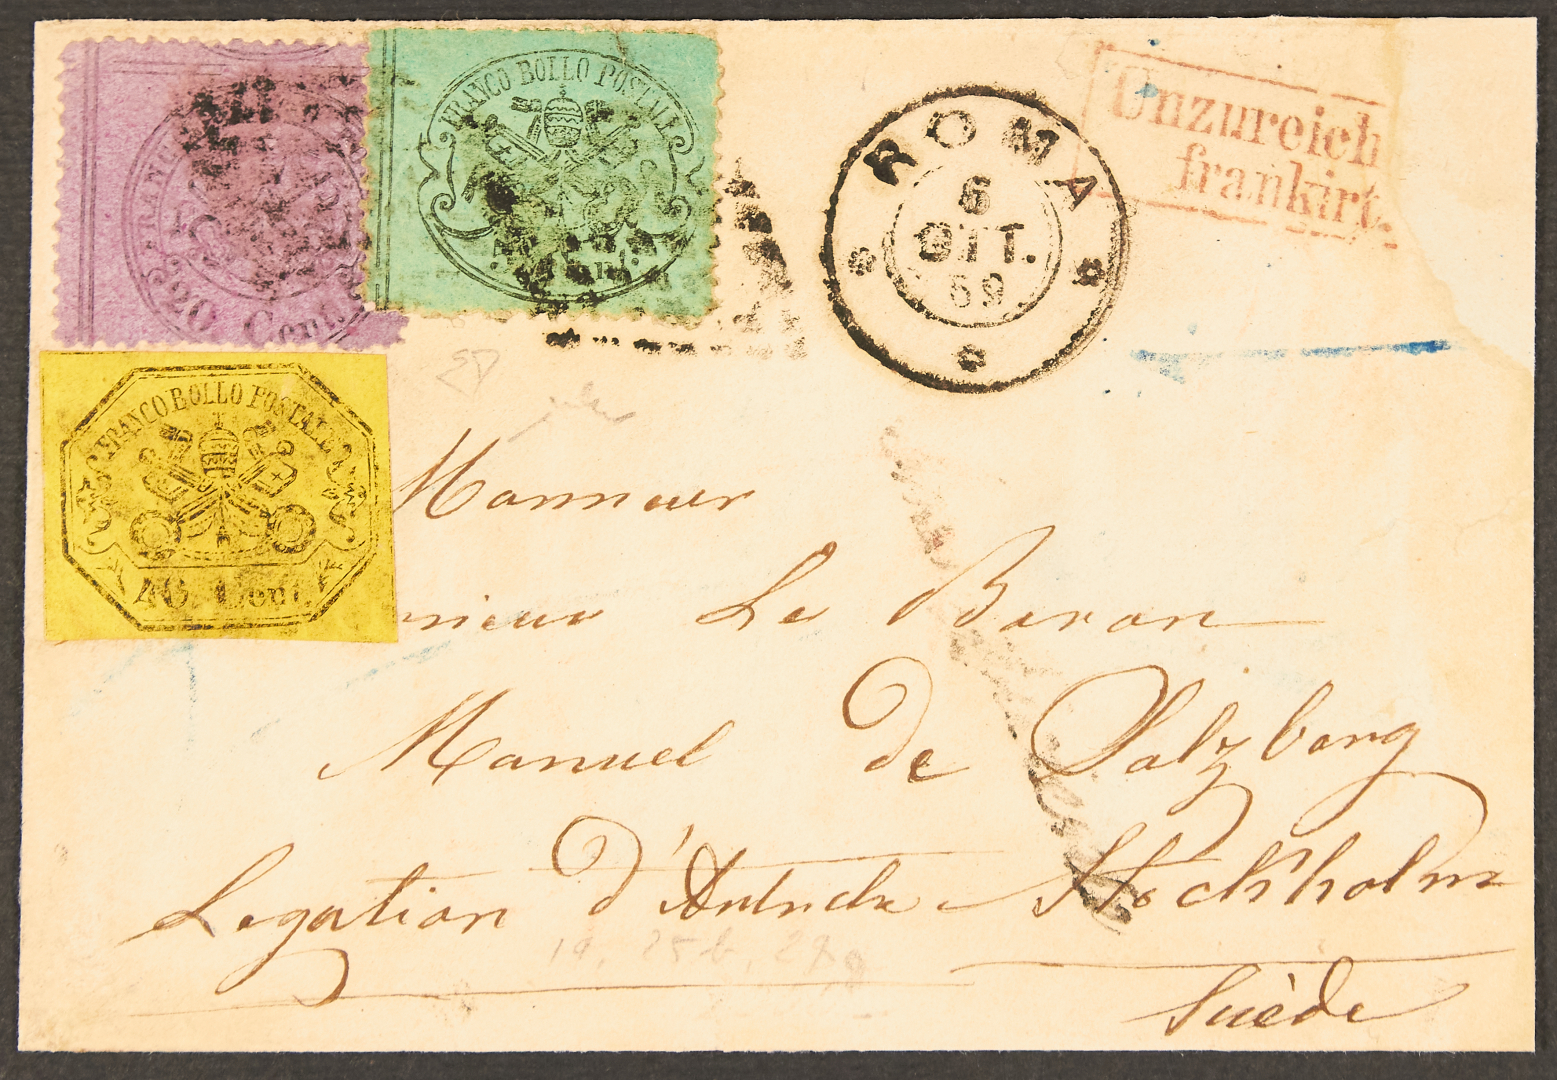 FRANCO
20 Cent.
FRANCO BOLLO POSTALE
ROMA
6
OTT.
69
Unzureich
frankirt.
FRANCO BOLLO POSTALE
40 Cent.
Monsieur
nsieur Le Baron
Manuel de Salzberg
Legation d'Autriche Stockholm
Suède